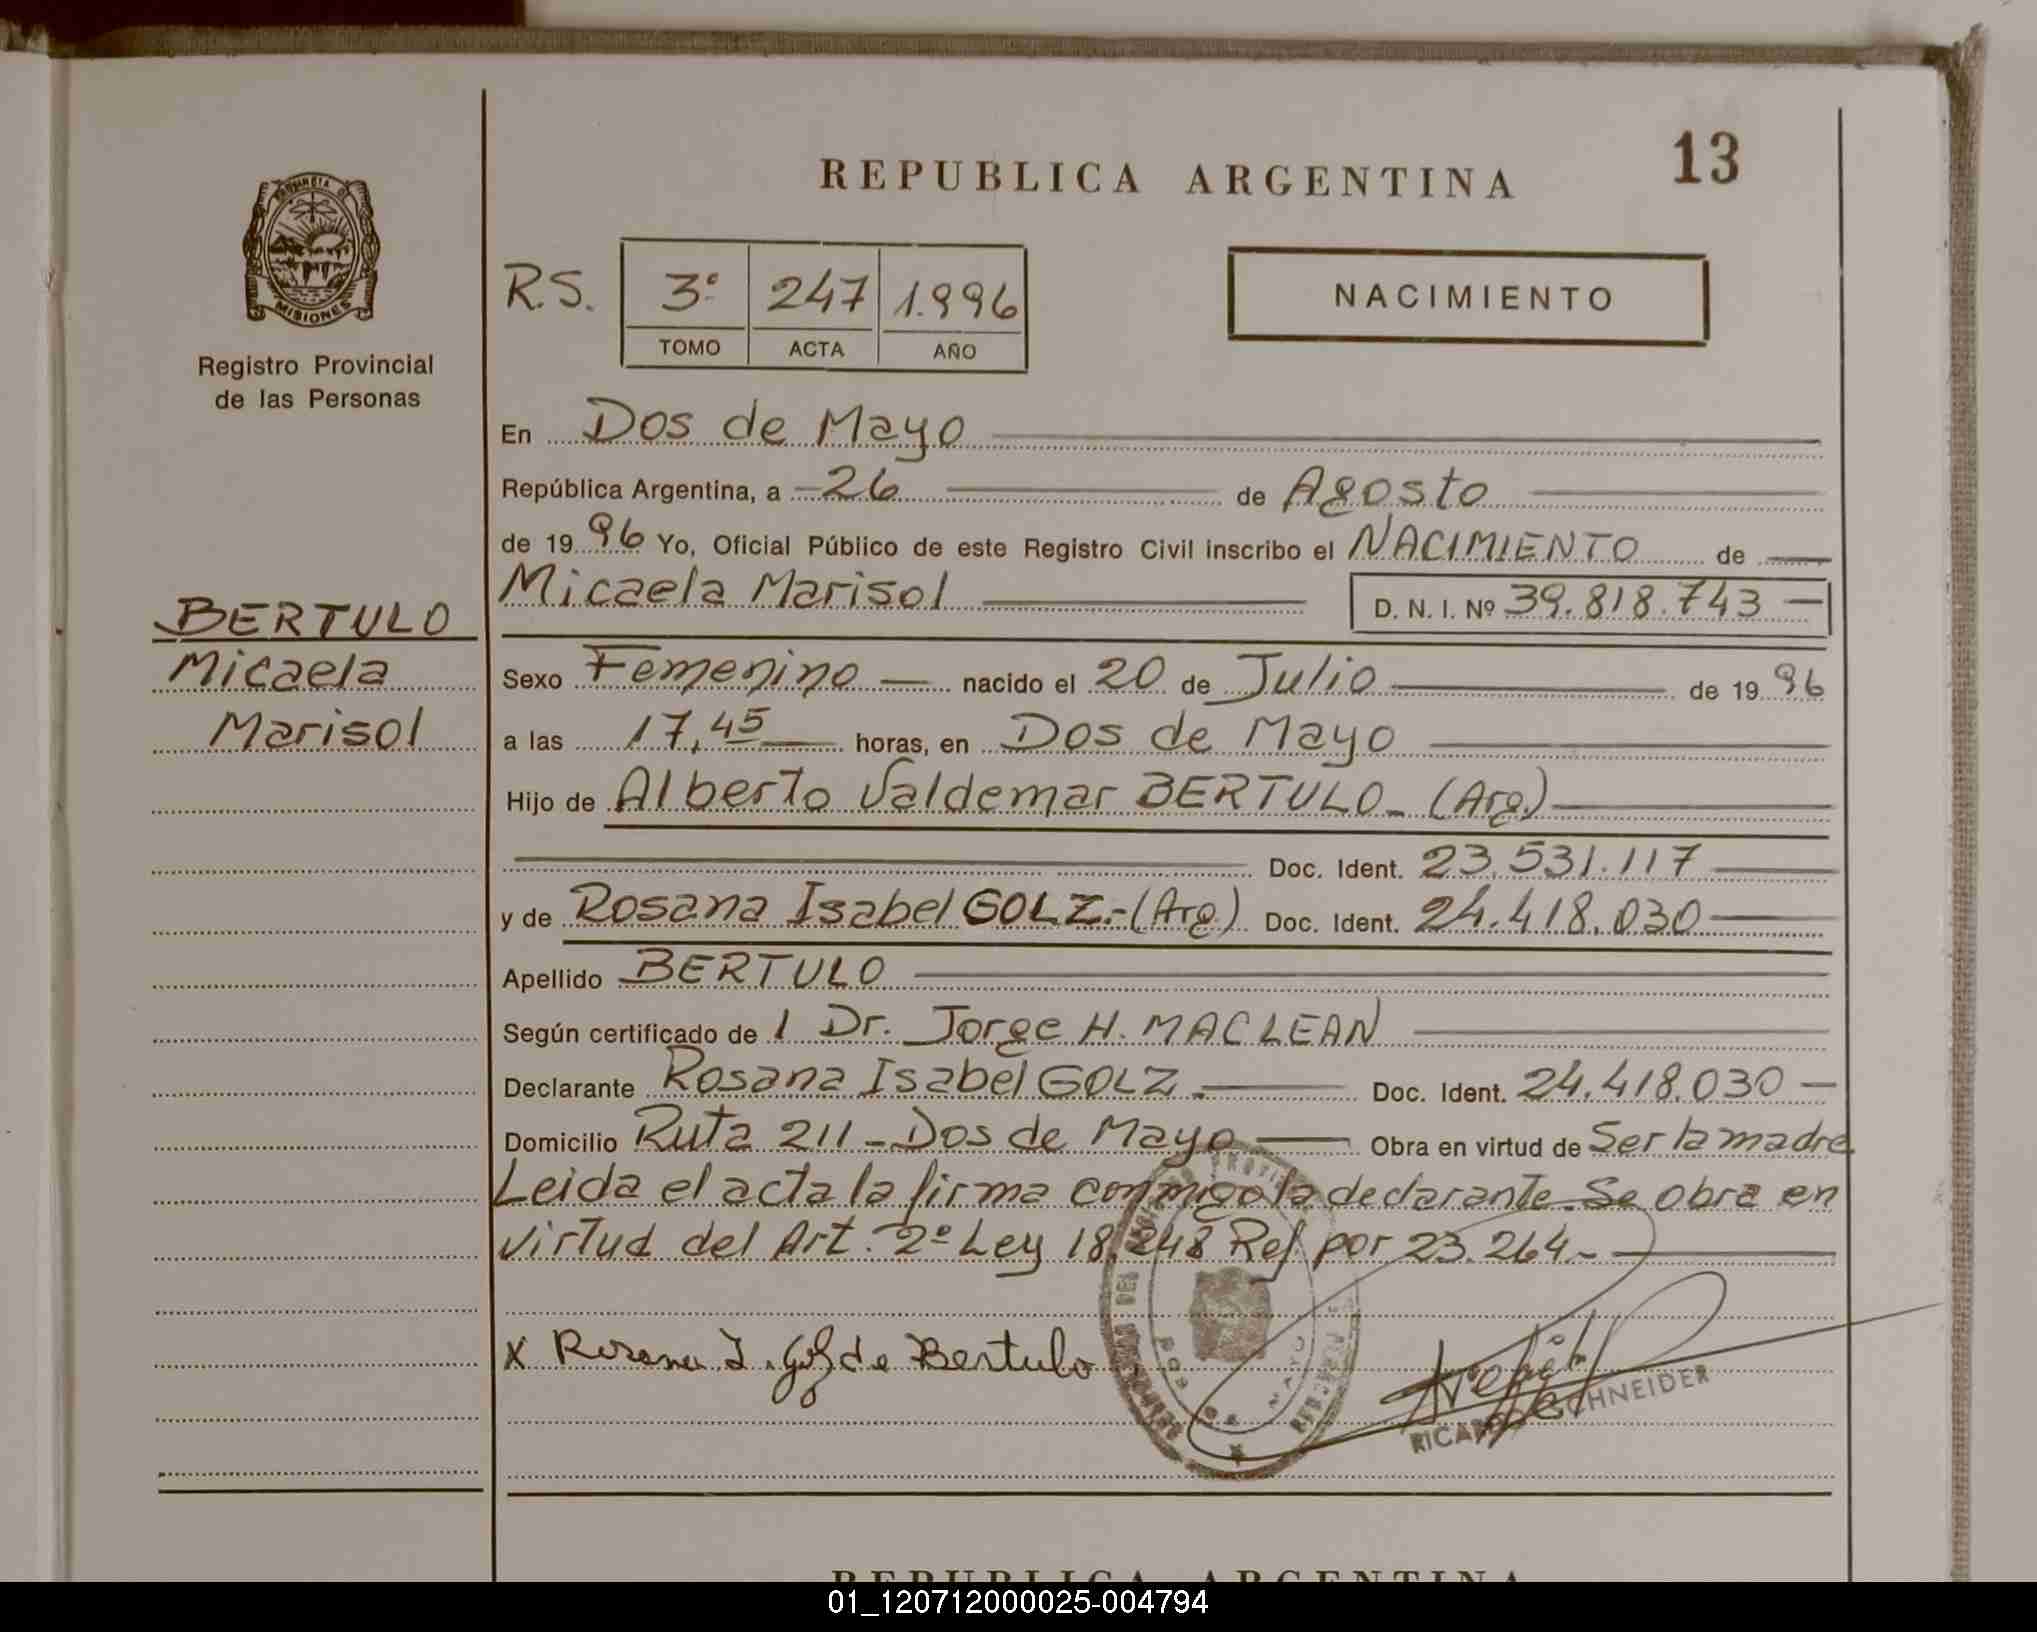 REPUBLICA ARGENTINA
13
PROVINCIA D
MISIONES
Registro Provincial
de las Personas
R.S.
3º 247 1.996
TOMO ACTA AÑO
NACIMIENTO
En Dos de Mayo
República Argentina, a 26 de Agosto
de 1996 Yo, Oficial Público de este Registro Civil inscribo el NACIMIENTO de
Micaela Marisol D. N. I. Nº 39.818.743
BERTULO
Micaela
Marisol
Sexo Femenino nacido el 20 de Julio de 1996
a las 17,45 horas, en Dos de Mayo
Hijo de Alberto Valdemar BERTULO - (Arg.)
Doc. Ident. 23.531.117
y de Rosana Isabel GOLZ.-(Arg.) Doc. Ident. 24.418.030
Apellido BERTULO
Según certificado de 1 Dr. Jorge H. MACLEAN
Declarante Rosana Isabel GOLZ.- Doc. Ident. 24.418.030
Domicilio Ruta 211 - Dos de Mayo Obra en virtud de Ser la madre
Leida el acta la firma conmigo la declarante. Se obra en
virtud del Art. 2º Ley 18.248 Ref. por 23.264.-
x Rosana I. Golz de Bertulo
RICARDO SCHNEIDER
REPUBLICA ARGENTINA
01_120712000025-004794